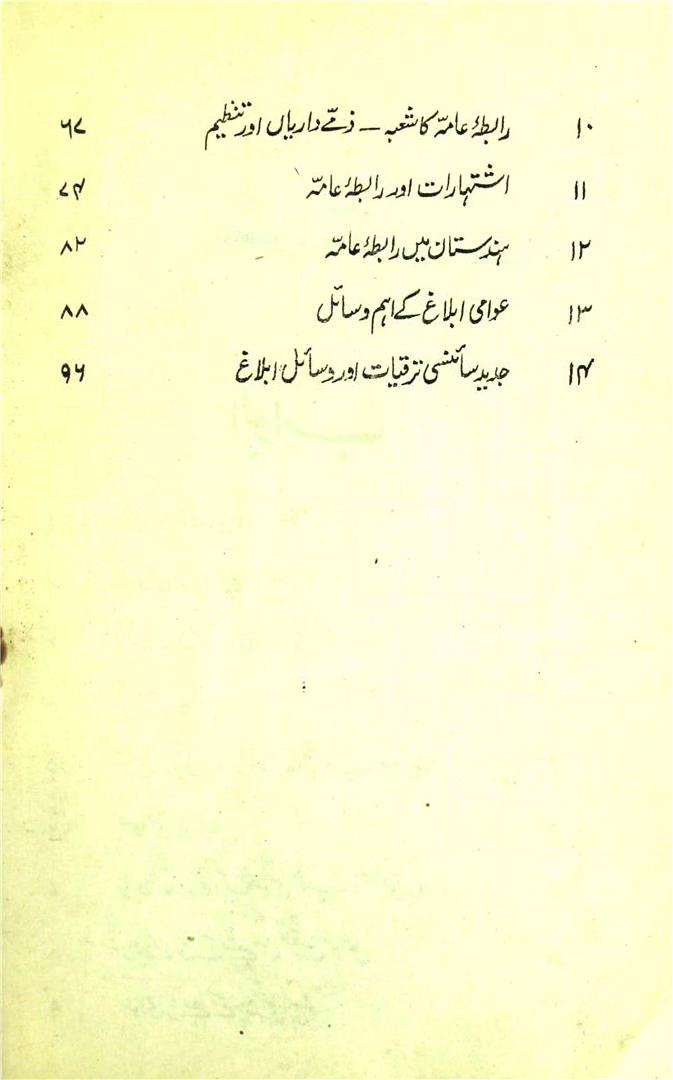 ۱۰ رابطۂ عامہّ کا شعبہ – ذمّے داریاں اور تنظیم ۶۷
۱۱ اشتہارات اور رابطۂ عامہّ ۷۴
۱۲ ہندستان میں رابطۂ عامہّ ۸۲
۱۳ عوامی ابلاغ کے اہم وسائل ۸۸
۱۴ جدید سائنسی ترقیات اور وسائل ابلاغ ۹۶